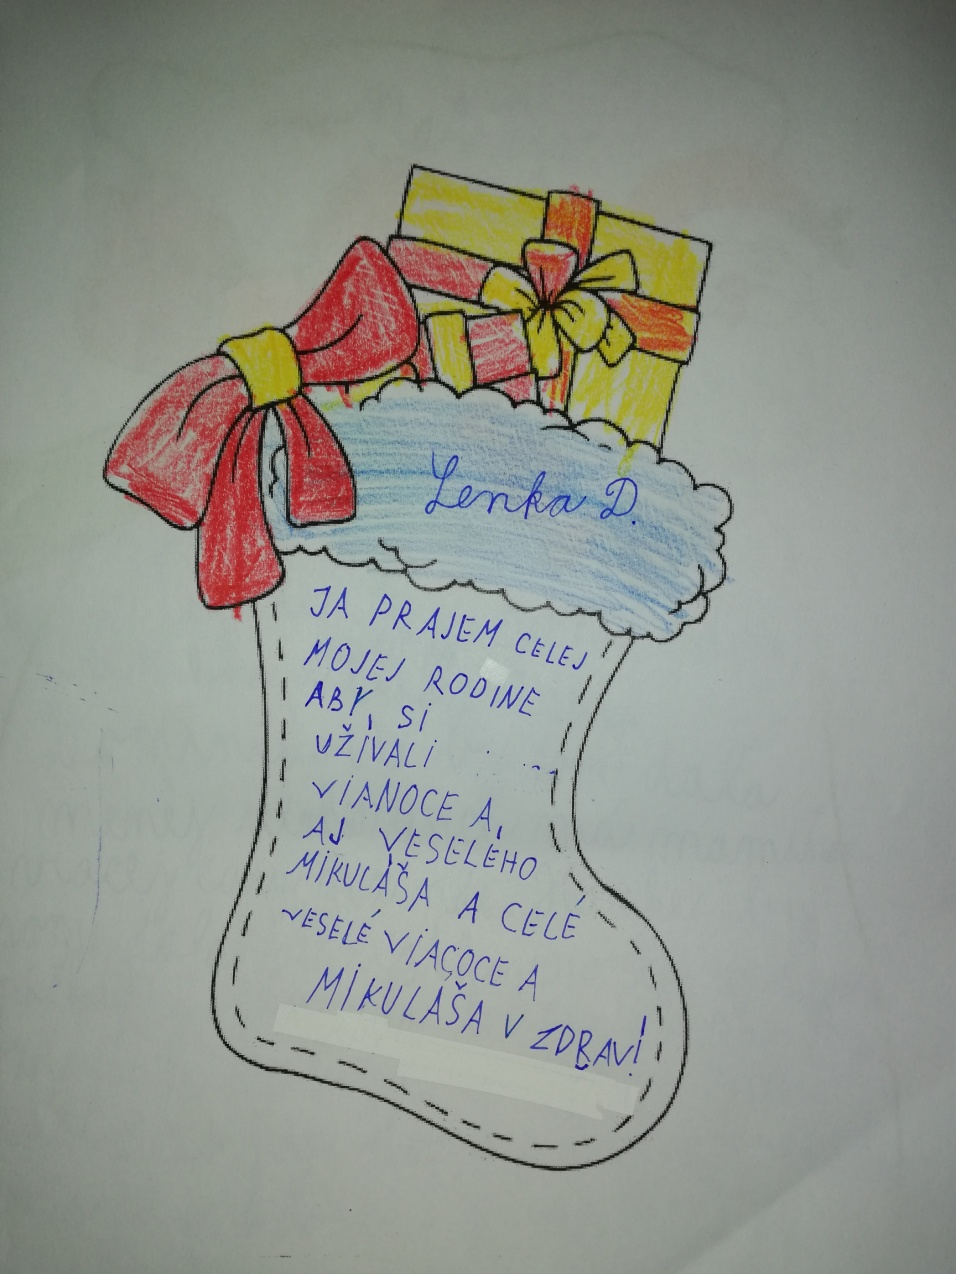 Lenka D.
JA PRAJEM CELEJ
MOJEJ RODINE
ABY, SI
UŽÍVALI
VIANOCE A,
AJ VESELÉHO
MIKULÁŠA A CELÉ
VESELÉ VIAÇOCE A
MIKULÁŠA V ZDRAVÍ